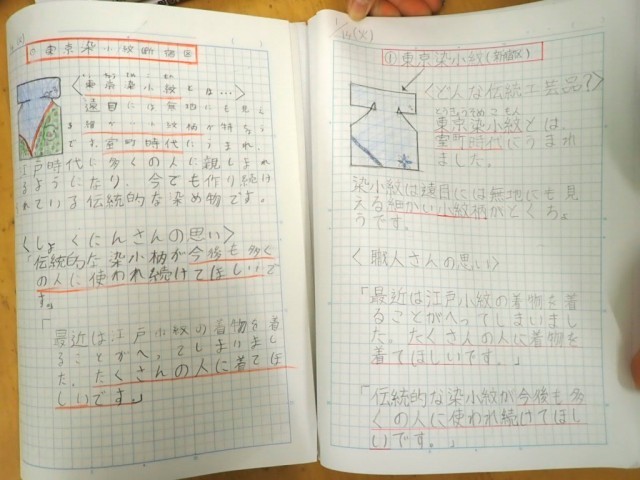 ①東京染小紋(新宿区)
<東京染小紋とは…>
遠目には無地にも見え
細かい小紋柄が特ちょう
です。室町時代にうまれ、
江戸時代に多くの人に親しまれ
るようになり、今でも作り続け
られている伝統的な染め物です。
<しょくにんさんの思い>
「伝統的な染小柄が今後も多く
の人に使われ続けてほしいで
す。」
「最近は江戸小紋の着物を着
ることがへってしまいまし
た。たくさんの人に着てほ
しいです。」
1/14(火)
①東京染小紋(新宿区)
<どんな伝統工芸品?>
とうきょうそめこもん
東京染小紋とは
室町時代にうまれ
ました。
染小紋は遠目には無地にも見
える細かい小紋柄がとくちょ
うです。
<職人さんの思い>
「最近は江戸小紋の着物を着
ることがへってしまいまし
た。たくさんの人に着物を
着てほしいです。」
「伝統的な染小紋が今後も多
くの人に使われ続けてほし
いです。」